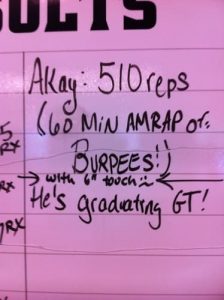 SULTS
AKay: 510 reps
(60 MIN AMRAP of:
BURPEES!)
→ with 6" touch :) ←
He's graduating GT!
5
RX
RX
RX